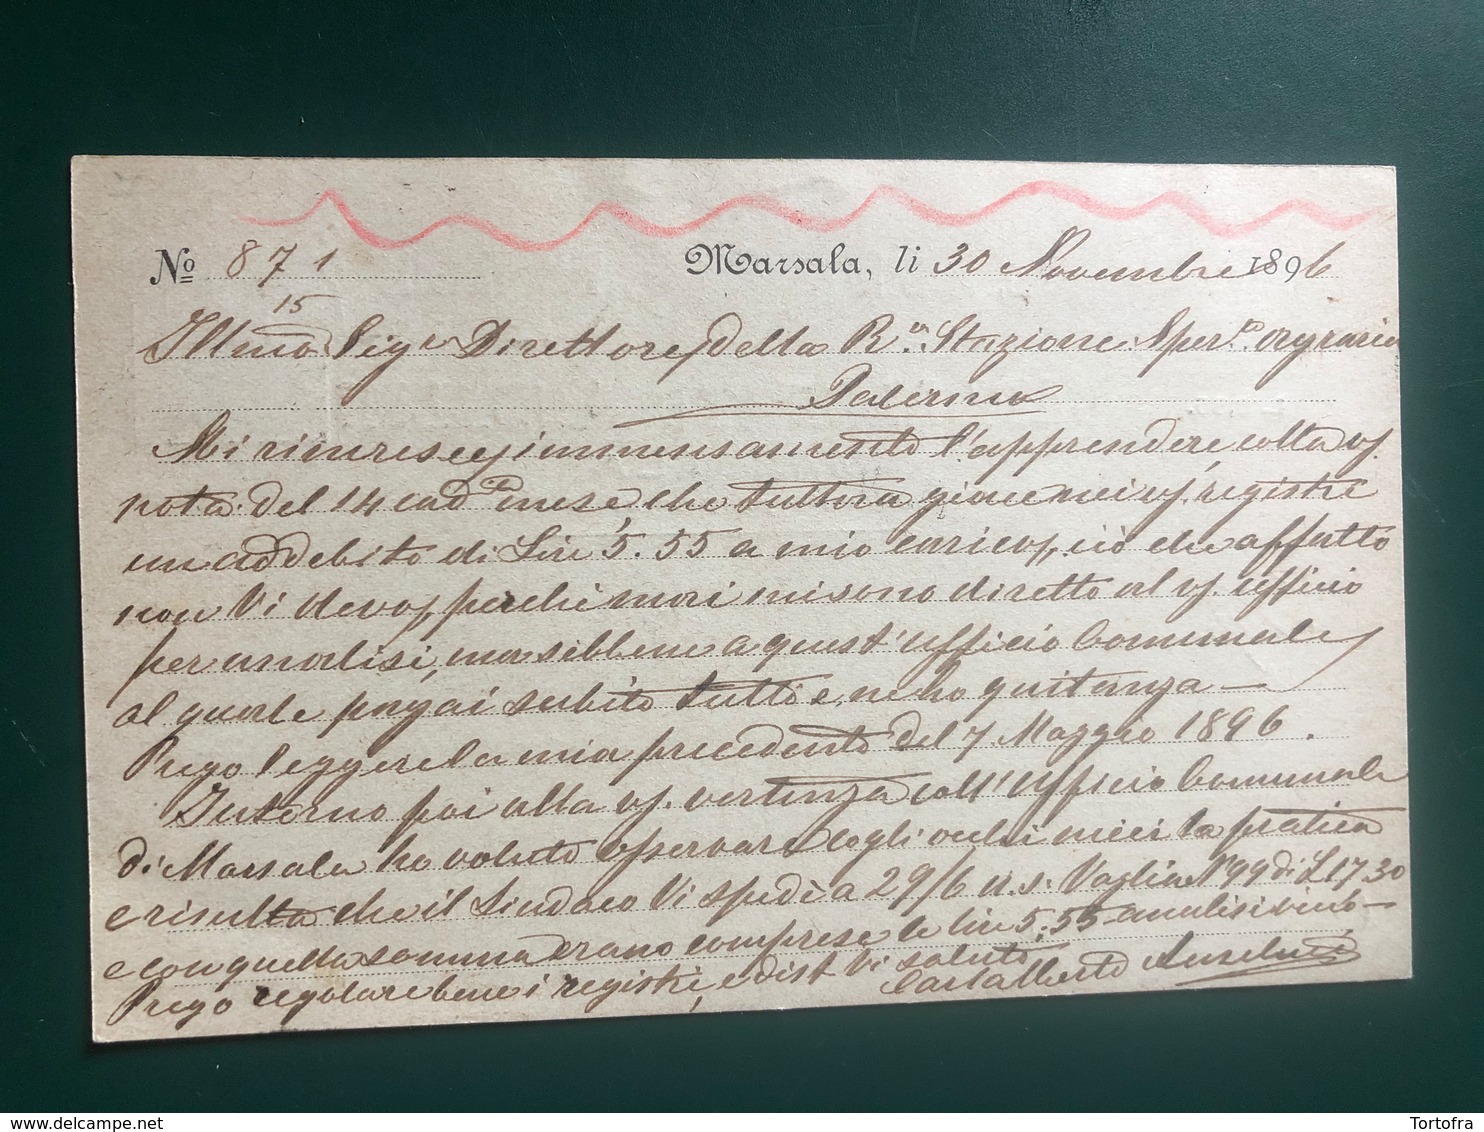 Nº 871
15
Marsala, li 30 Novembre 1896
Illmo Sigr Direttore della Rа Stazione Sperle Agraria
Palermo
Mi rincresce immensamente l'apprendere colla vs.
nota del 14 cadte mese che tuttora giace nei vs. registri
un addebito di Lire 5.55 a mio carico, ciò che affatto
non Vi devo, perchè mai mi sono diretto al vs. ufficio
per analisi, ma sibbene a quest'ufficio Comunale
al quale pagai subito tutto e, ne ho quitanza—
Prego leggere la mia precedente del 7 Maggio 1896.
Intorno poi alla vs. vertenza coll'Ufficio Comunale
di Marsala ho voluto osservare cogli occhi miei la pratica
e risulta che il Sindaco Vi spedì a 29/6 u.s. Vaglia Nº 99 di L 17.30
e con quella somma erano comprese le lire 5.55 analisi vino—
Prego regolare bene i registri, e dist Vi saluto,
Carlalberto Anselmi
Tortofra